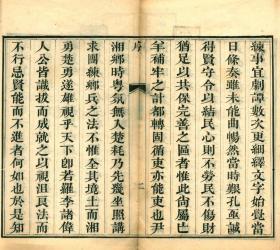 諫事宜劇譚數次更細繹文字始覺當
日條奏雖未能曲暢然當時艱孔亟誠
得賢守令以結民心則不勞民不傷財
猶足以共保完善之區者惟此尙屬亡
羊補牢之計都轉固循吏亦能吏也尹
湘鄉時粵氛無入楚耗乃先幾坐照講
求團練鄉兵之法不惟全其境土而湘
勇楚勇遂雄視乎天下卽若羅李諸偉
人公皆識拔而成就之以視沮良法而
不行忌賢能而不進者何如也於是知
序
二